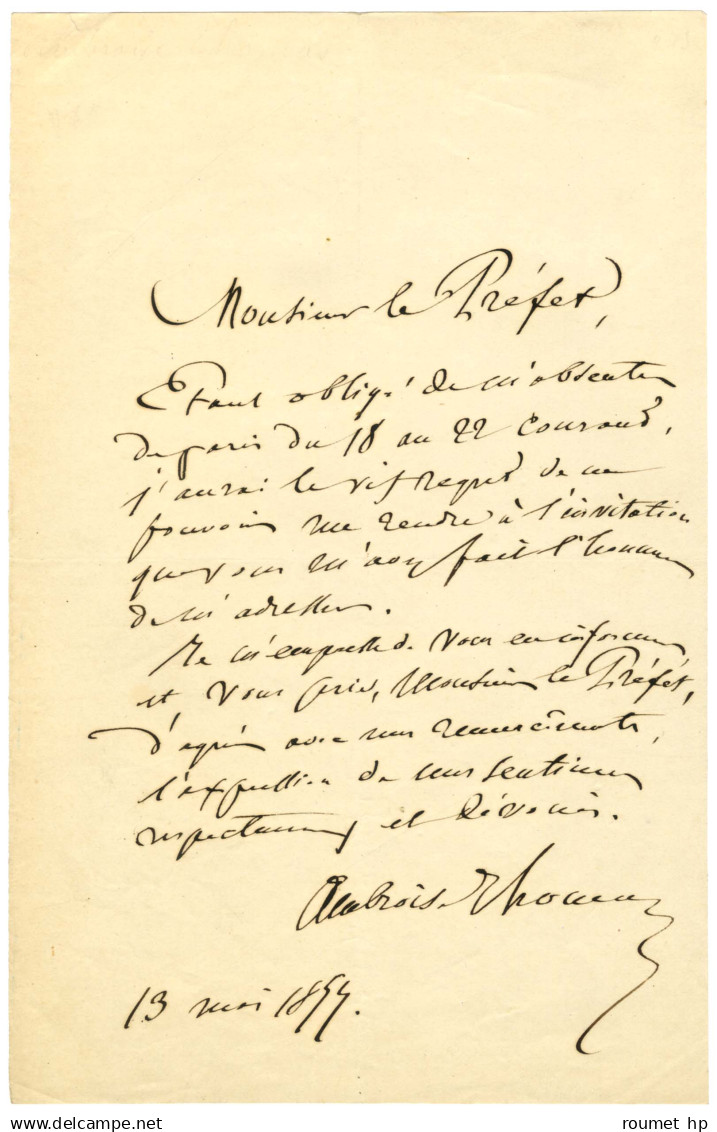 Monsieur le Préfet,
Etant obligé de m'absenter
de paris du 18 au 22 courant,
j'aurai le vif regret de ne
pouvoir me rendre à l'invitation
que vous m'avez fait l'honneur
de m'adresser.
Je m'empresse de vous en informer
et vous prie, Monsieur le Préfet,
d'agréer avec mes remerciments,
l'expression de mes sentimens
respectueux et dévoués.
Ambroise Thomas
13 mai 1857.
www.delcampe.net
roumet hp